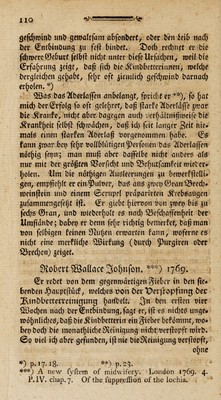 110
geschwind und gewaltsam absondert, oder den Leib nach
der Entbindung zu fest bindet. Doch rechnet er die
schwere Geburt selbst nicht unter diese Ursachen, weil die
Erfahrung zeigt, daß sich die Kindbetterinnen, welche
dergleichen gehabt, sehr oft ziemlich geschwind darnach
erholen. *)
Was das Aderlassen anbelangt, spricht er **), so hat
mich der Erfolg so oft gelehret, daß starke Aderlässe zwar
die Kranke, nicht aber dagegen auch verhältnißweise die
Krankheit selbst schwächen, daß ich seit langer Zeit nie-
mals einen starken Aderlaß vorgenommen habe. Es
kann zwar bey sehr vollblütigen Personen das Aderlassen
nöthig seyn; man muß aber daffelbe nicht anders als
nur mit der größten Vorsicht und Behutsamkeit wieder-
holen. Um die nöthigen Ausleerungen zu bewerkstelli-
gen, empfiehlt er ein Pulver, das aus zwey Gran Brech-
weinstein und einem Skrupel präparirten Krebsaugen
zusammengesetzt ist. Er giebt hiervon von zwey bis zu
sechs Gran, und wiederholt es nach Beschaffenheit der
Umstände; dabey er denn sehr richtig erinnert, daß man
von selbigen keinen Nutzen erwarten kann, woferne es
nicht eine merkliche Wirkung (durch Purgiren oder
Brechen) zeiget.
Robert Wallace Johnson. ***) 1769.
Er redet von dem gegenwärtigen Fieber in dem sie-
benden Hauptstück, welches von der Verstopfung der
Kindbetterreinigung handelt. In den ersten vier
Wochen nach der Entbindung, sagt er, ist es nichts unge-
wöhnliches, daß die Kindbetterin ein Fieber bekömmt, wo-
bey doch die monathliche Reinigung nicht verstopft wird.
So viel ich aber gesunden, ist nie die Reinigung verstopft,
ohne
*) p. 17. 18. **) p. 23.
***) A new system of midwifery. London 1769. 4.
P. IV. chap. 7. Of the suppression of the lochia.